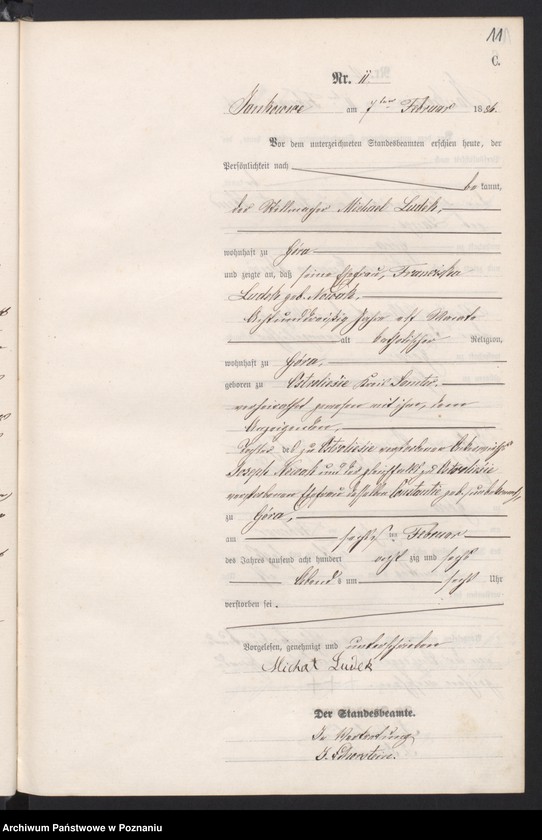 11
C.
Nr. 11
Jankowice am 7ten Februar 1886.
Vor dem unterzeichneten Standesbeamten erschien heute, der
Persönlichkeit nach
be kannt,
der Stellmacher Michael Ludek,
wohnhaft zu Góra
und zeigte an, daß seine Ehefrau, Franziska
Ludek geb. Nowak,
Achtunddreißig Jahre acht Monate
alt katholischer Religion,
wohnhaft zu Góra,
geboren zu Ostrolesie Kreis Samter
verheirathet gewesen mit ihm, dem
Anzeigenden,
Tochter des zu Ostrolesie verstorbenen
Joseph Nowak und der gleichfalls zu Ostrolesie
verstorbenen Ehefrau desselben Constantie geb. unbekannt,
zu Góra,
am sechsten Februar
des Jahres tausend acht hundert acht zig und sechs
Abend s um sechs Uhr
verstorben sei.
Vorgelesen, genehmigt und unterschrieben
Michał Ludek
Der Standesbeamte.
In Vertretung.
Archiwum Państwowe w Poznaniu